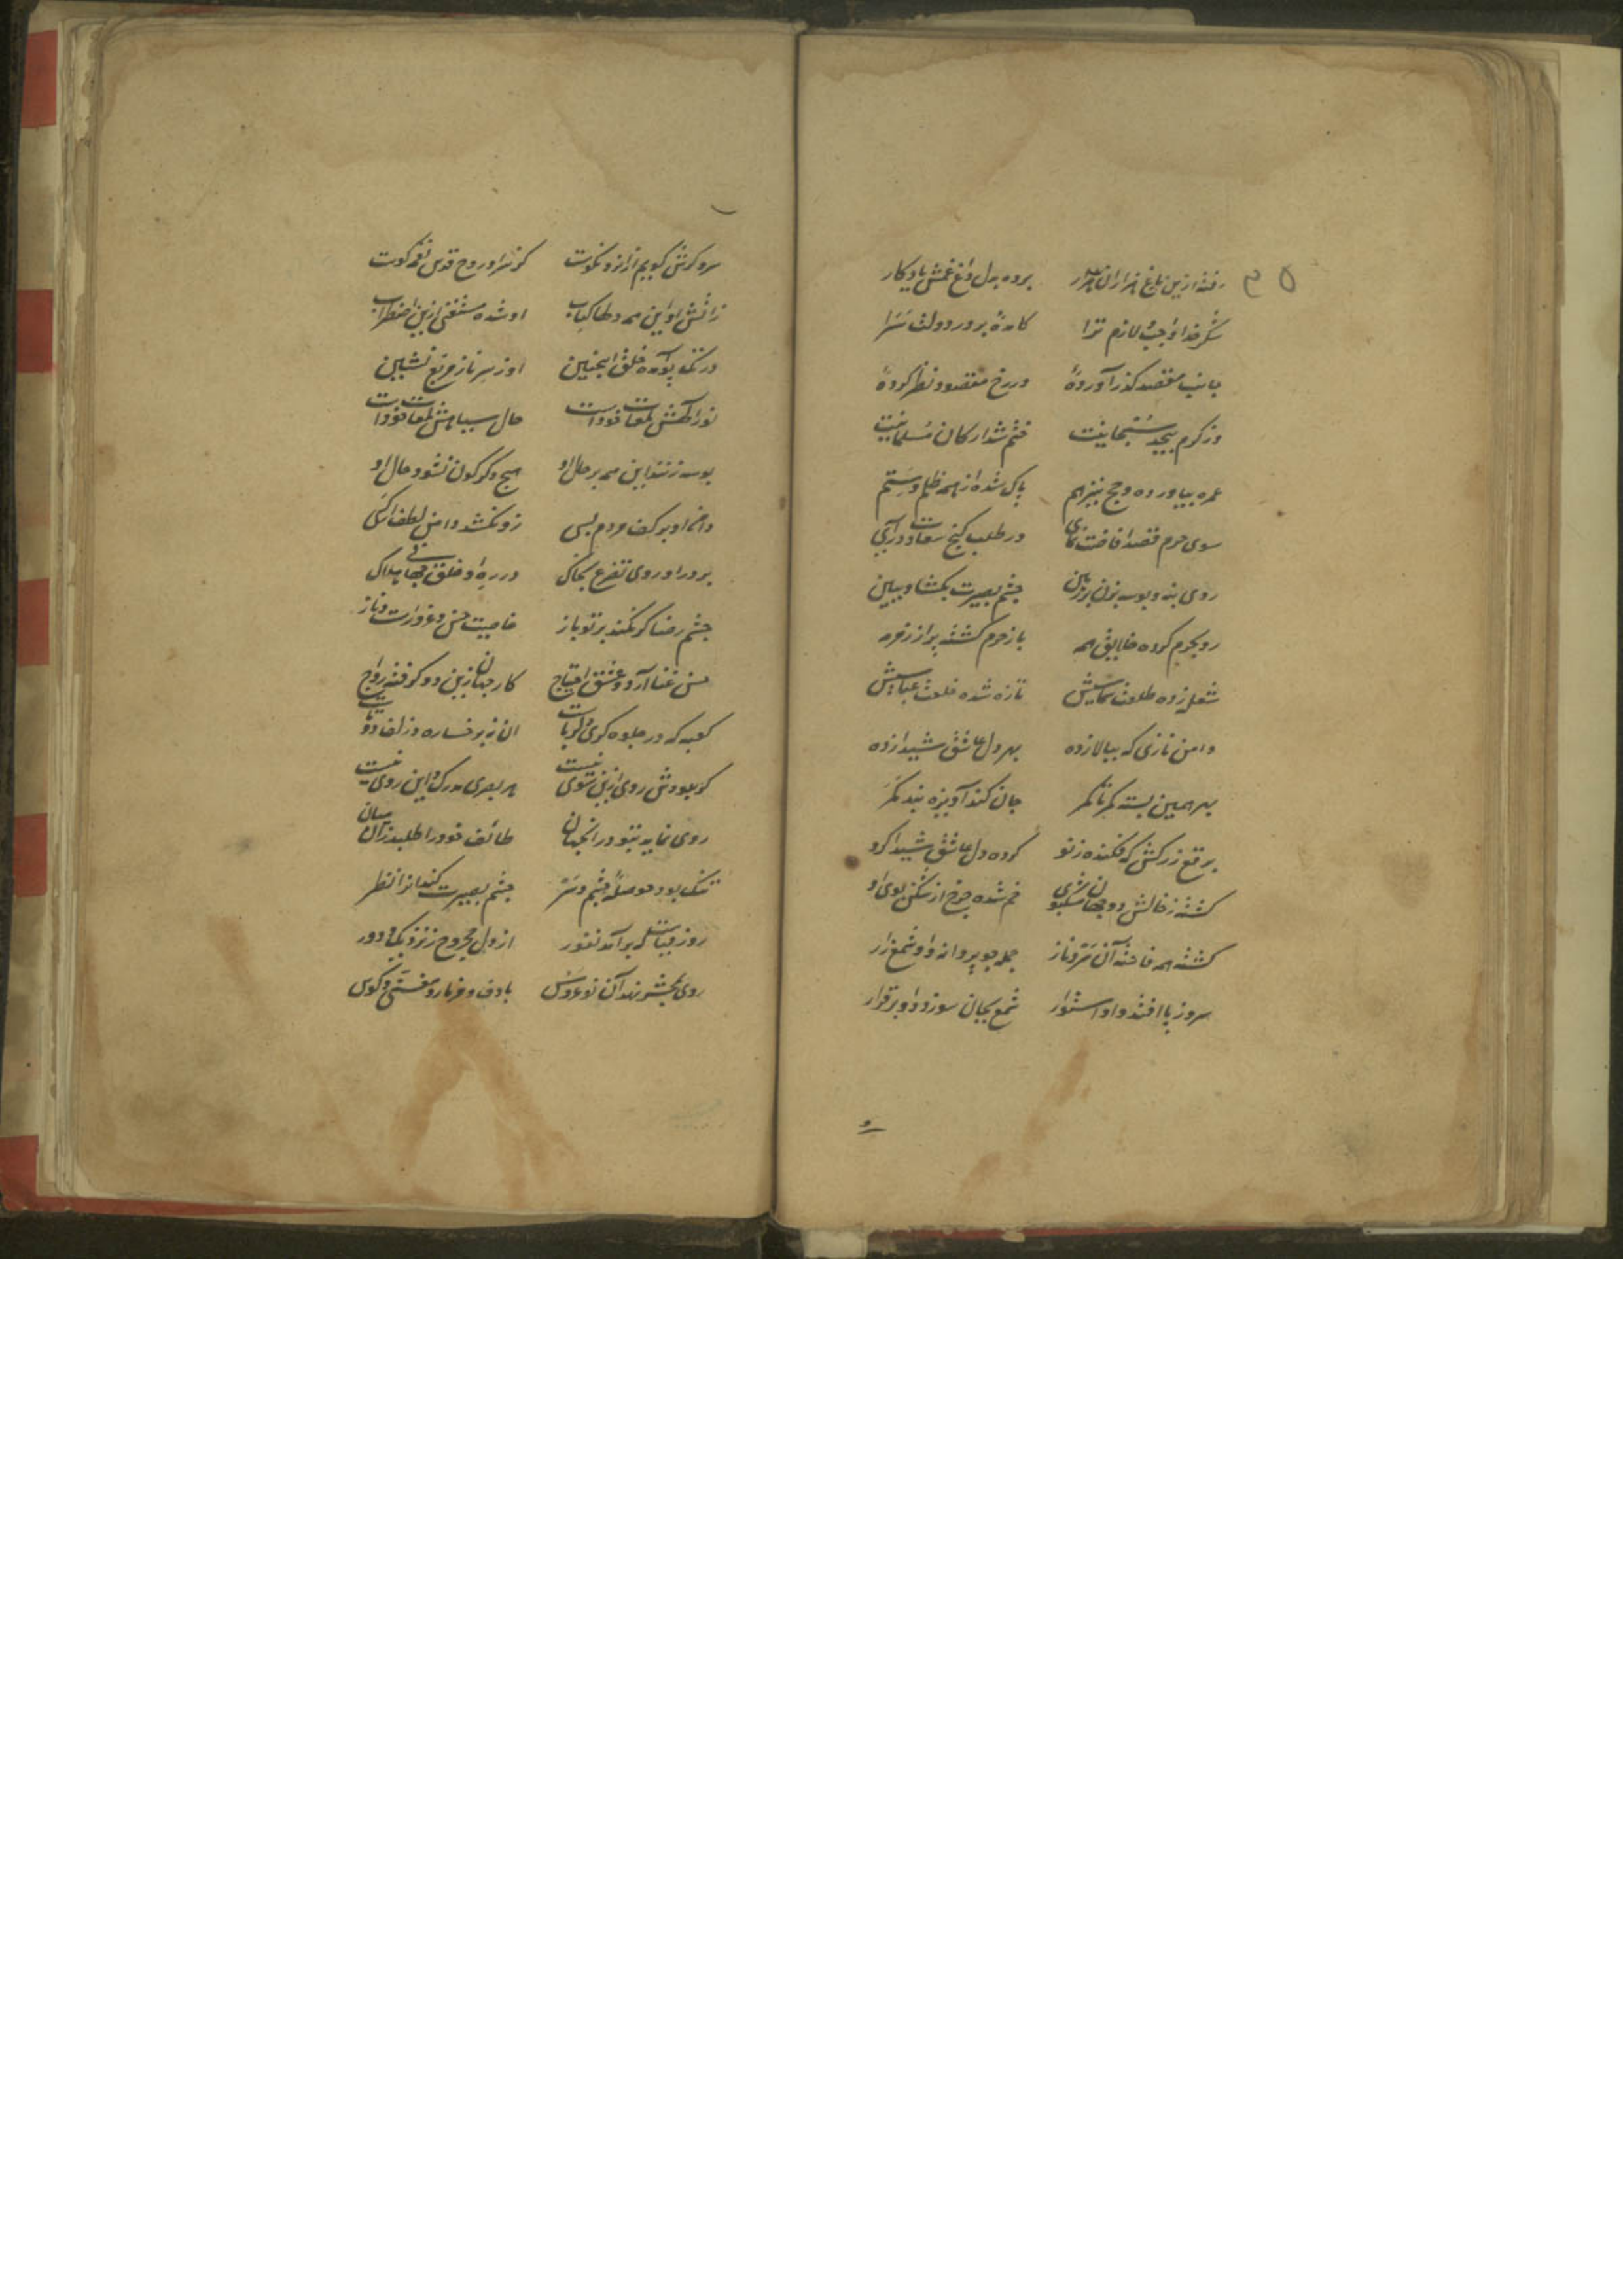 رفته ازین باغ هزاران هزار برده بدل داغ غمش یادگار
شکر خدا واجب و لازم ترا کامده بر در دولت سرا
جانب مقصد گذر آورده در رخ مقصود نظر کرده
وز کرم بیحد سبحانیت ختم شد ارکان مسلمانیت
عمره بیاورده و حج نیز هم پاک شده از همه ظلم و ستم
سوی حرم قصد افاضت نمای در طلب گنج سعادت درآی
روی بنه و بوسه بزن بر زمین چشم بصیرت بگشا و ببین
رو بحرم کرده خلایق همه باز حرم گشته پر از زمزمه
شعله زده طلعت تازه شده خلعت عباسیش
دامن نازی که ببالا زده بهر دل عاشق شیدا زده
بهر همین بسته کمر تا کمر جان کند آویزه بند کمر
برقع زرکش که فکنده ز نو کرده دل عاشق شیدا گرو
گشته ز خالش دو جهان خم شده چرخ از شکن موی او
گشته همه فاخته آن سرو ناز جمله چو پروانه و او شمع
سرو ز پا افتد و او استوار شمع بجان سوزد و او برقرار
و
سرو کرش گویم ازانرو نکوست کز سر او روح قدس نغمه گوست
ز آتش او این همه دلها کباب او شده مستغنی ازین اضطراب
در تک پو آمده خلق اینچنین او ز سر ناز مربع نشین
خال سیاهش
بوسه زنند این همه بر خال او هیچ دگرگون نشود حال او
دامن او بر کف مردم بسی زو نکشد دامن لطف کسی
بر در او روی تضرع بخاک در ره او خلق جهانی هلاک
چشم رضا گر نکند بر تو باز خاصیت حسن غرورست و ناز
حسن غنا آرد و عشق احتیاج کار جهان زین دو گرفته رواج
کعبه که در جلوه گری دلرباست آن نه برخساره و زلف دوتاست
کز بودش روی ازین سوی نیست هر بصری مدرک این روی نیست
روی نماید بتو در آنجهان طائف خود را طلبد زان میان
تنک بود حوصله چشم و سر چشم بصیرت کند آنرا نظر
روز قیامت که برآید نفور از دل مجروح ز نزدیک و دور
روی بمحشر نهد آن نو عروس با دف و مزمار و می و کوس